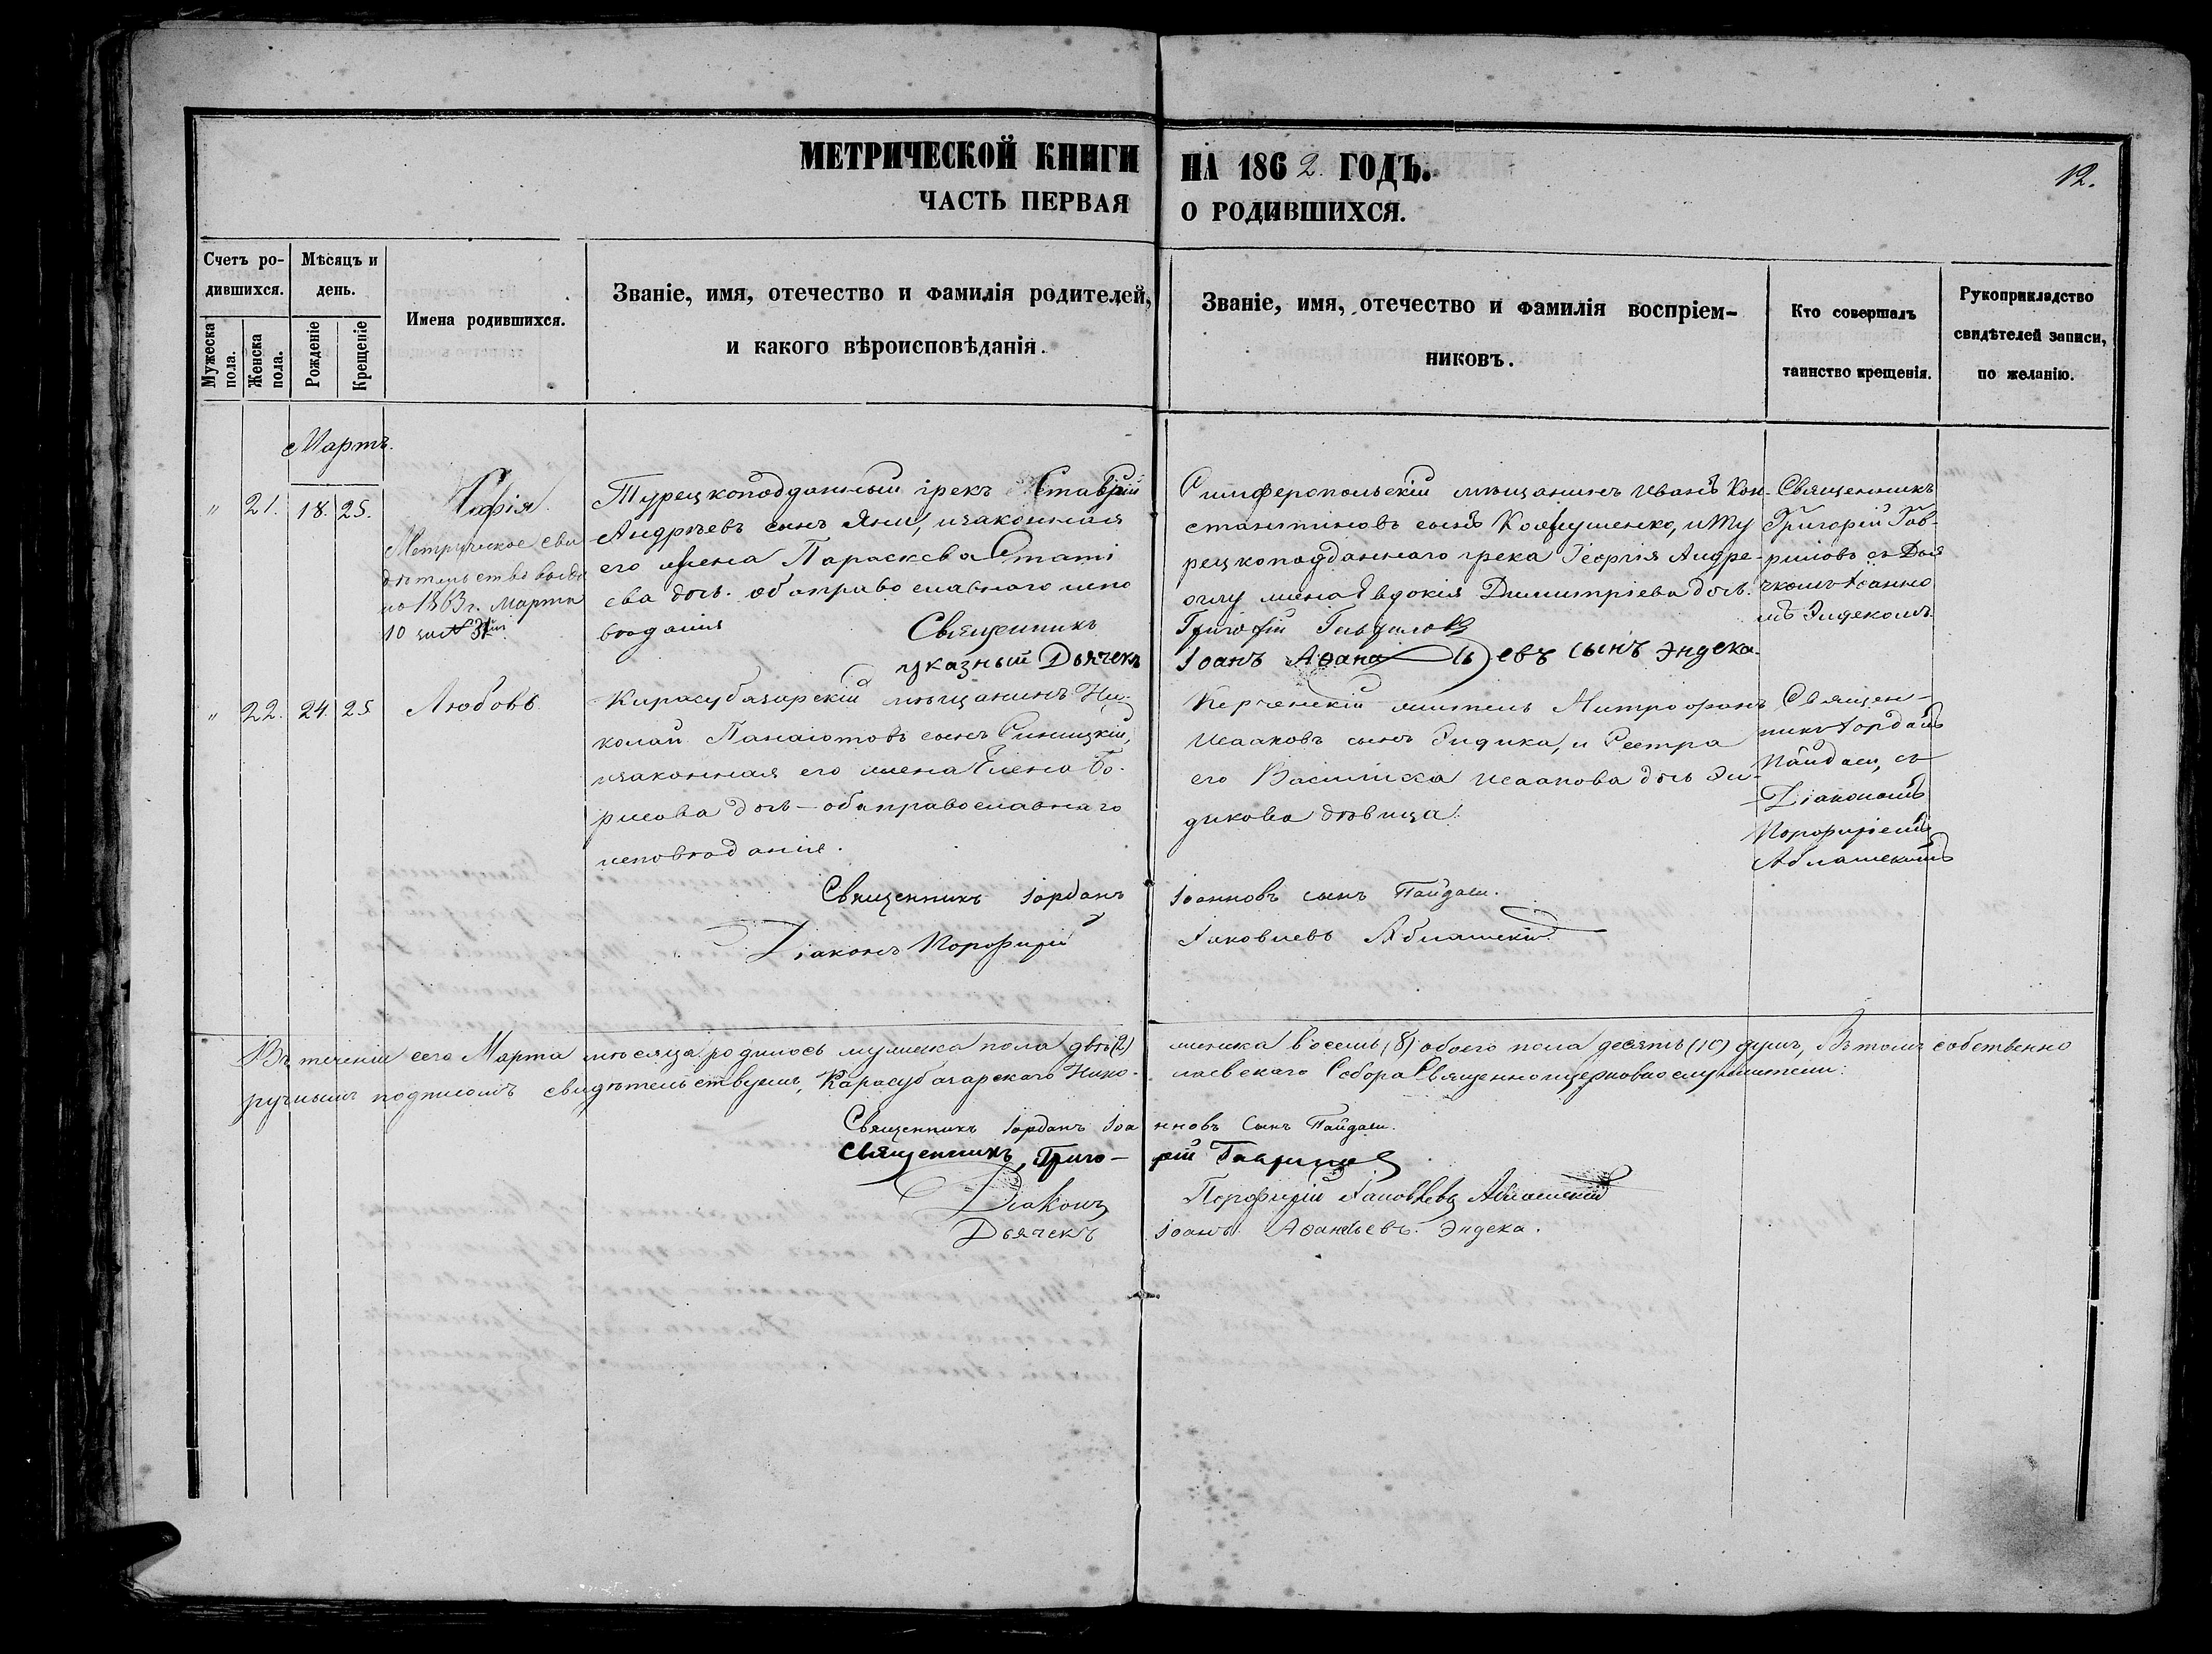 МЕТРИЧЕСКОЙ КНИГИ НА 1862. ГОДЪ.
12.
ЧАСТЬ ПЕРВАЯ О РОДИВШИХСЯ.
Счетъ ро-
дившихся.
Мужеска пола.
Женска пола.
Мѣсяцъ и
день.
Рожденіе
Крещеніе
Имена родившихся.
Званіе, имя, отечество и фамилія родителей,
и какого вѣроисповѣданія.
Званіе, имя, отечество и фамилія воспріем-
никовъ.
Кто совершалъ
таинство крещенія.
Рукоприкладство
свидѣтелей записи,
по желанію.
Мартъ.
" 21. 18. 25.
Софія.
Метрическое сви
дѣтельство выда
но 1863 г. Марта
10 за № 31
Турецкоподданный грекъ Ставрій
Андрѣевъ сынъ Яни, и законная
его жена Параскева Статі
ева дочь. оба православнаго испо
вѣданія
Симферопольскій мѣщанинъ Иванъ Кон-
стантиновъ сынъ, и Ту
рецкоподданнаго грека Георгія Андре-
оглу жена Евдокія Димитріева дочь.
Священникъ
Григорій Гав-
риловъ съ Дья
чкомъ Іоанно
мъ Эндекомъ.
Священникъ Григорій Гавриловъ
указный Дьячекъ Іоанъ Аѳанасьевъ сынъ Эндека.
" 22. 24. 25
Любовь
Карасубазарскій мѣщанинъ Ни-
колай Панаіотовъ сынъ Синицкій,
и законная его жена Елена Бо-
рисова дочь – оба православнаго
исповѣданія.
Керченскій житель Митрофанъ
Исааковъ сынъ, и Сестра
его Василиса Исаакова дочь
дѣвица.
Священ-
никъ Іорданъ
Пайдаси, съ
Діакономъ
Порфиріемъ
Аблашекимъ
Священникъ Іорданъ Іоанновъ сынъ Пайдаси.
Діаконъ Порфирій Яковлевъ Аблашекій
Въ теченіи сего Марта мѣсяца родилось мужеска пола двѣ (2) женска восемь (8) обоего пола десять (10) душъ, Въ томъ собственно
ручнымъ подписомъ свидѣтельствуемъ, Карасубазарскаго Нико- лаевскаго Собора Священноицерковнослужители:
Священникъ Іорданъ Іоанновъ Сынъ Пайдаси.
Священникъ, Григо- рій Гавриловъ
Діаконъ Порфирій Яковлевъ Аблашекій
Дьячекъ Іоанъ Аѳанасьевъ Эндека.